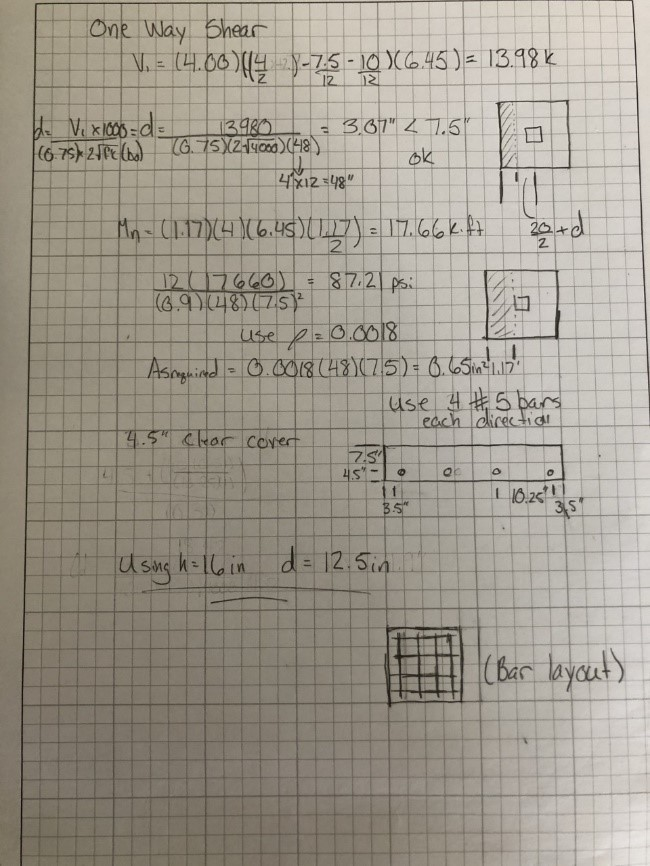 One Way Shear
V₁ = (4.00)((4/2) - 7.5/12 - 10/12)(6.45) = 13.98 k
d = V₁ x 1000 / (0.75) x 2√f'c (b₀) = d = 13980 / (0.75)(2√4000)(48) = 3.07" < 7.5"
ok
4' x 12 = 48"
Mn = (1.17)(4)(6.45)(1.17/2) = 17.66 k.ft
20/2 + d
12(17660) / (0.9)(48)(7.5)² = 87.21 psi
use ρ = 0.0018
As required = 0.0018(48)(7.5) = 0.65in²
1.17'
use 4 #5 bars
each direction
4.5" clear cover
7.5"
4.5"
3.5"
10.25"
3.5"
Using h = 16 in d = 12.5 in
(Bar layout)